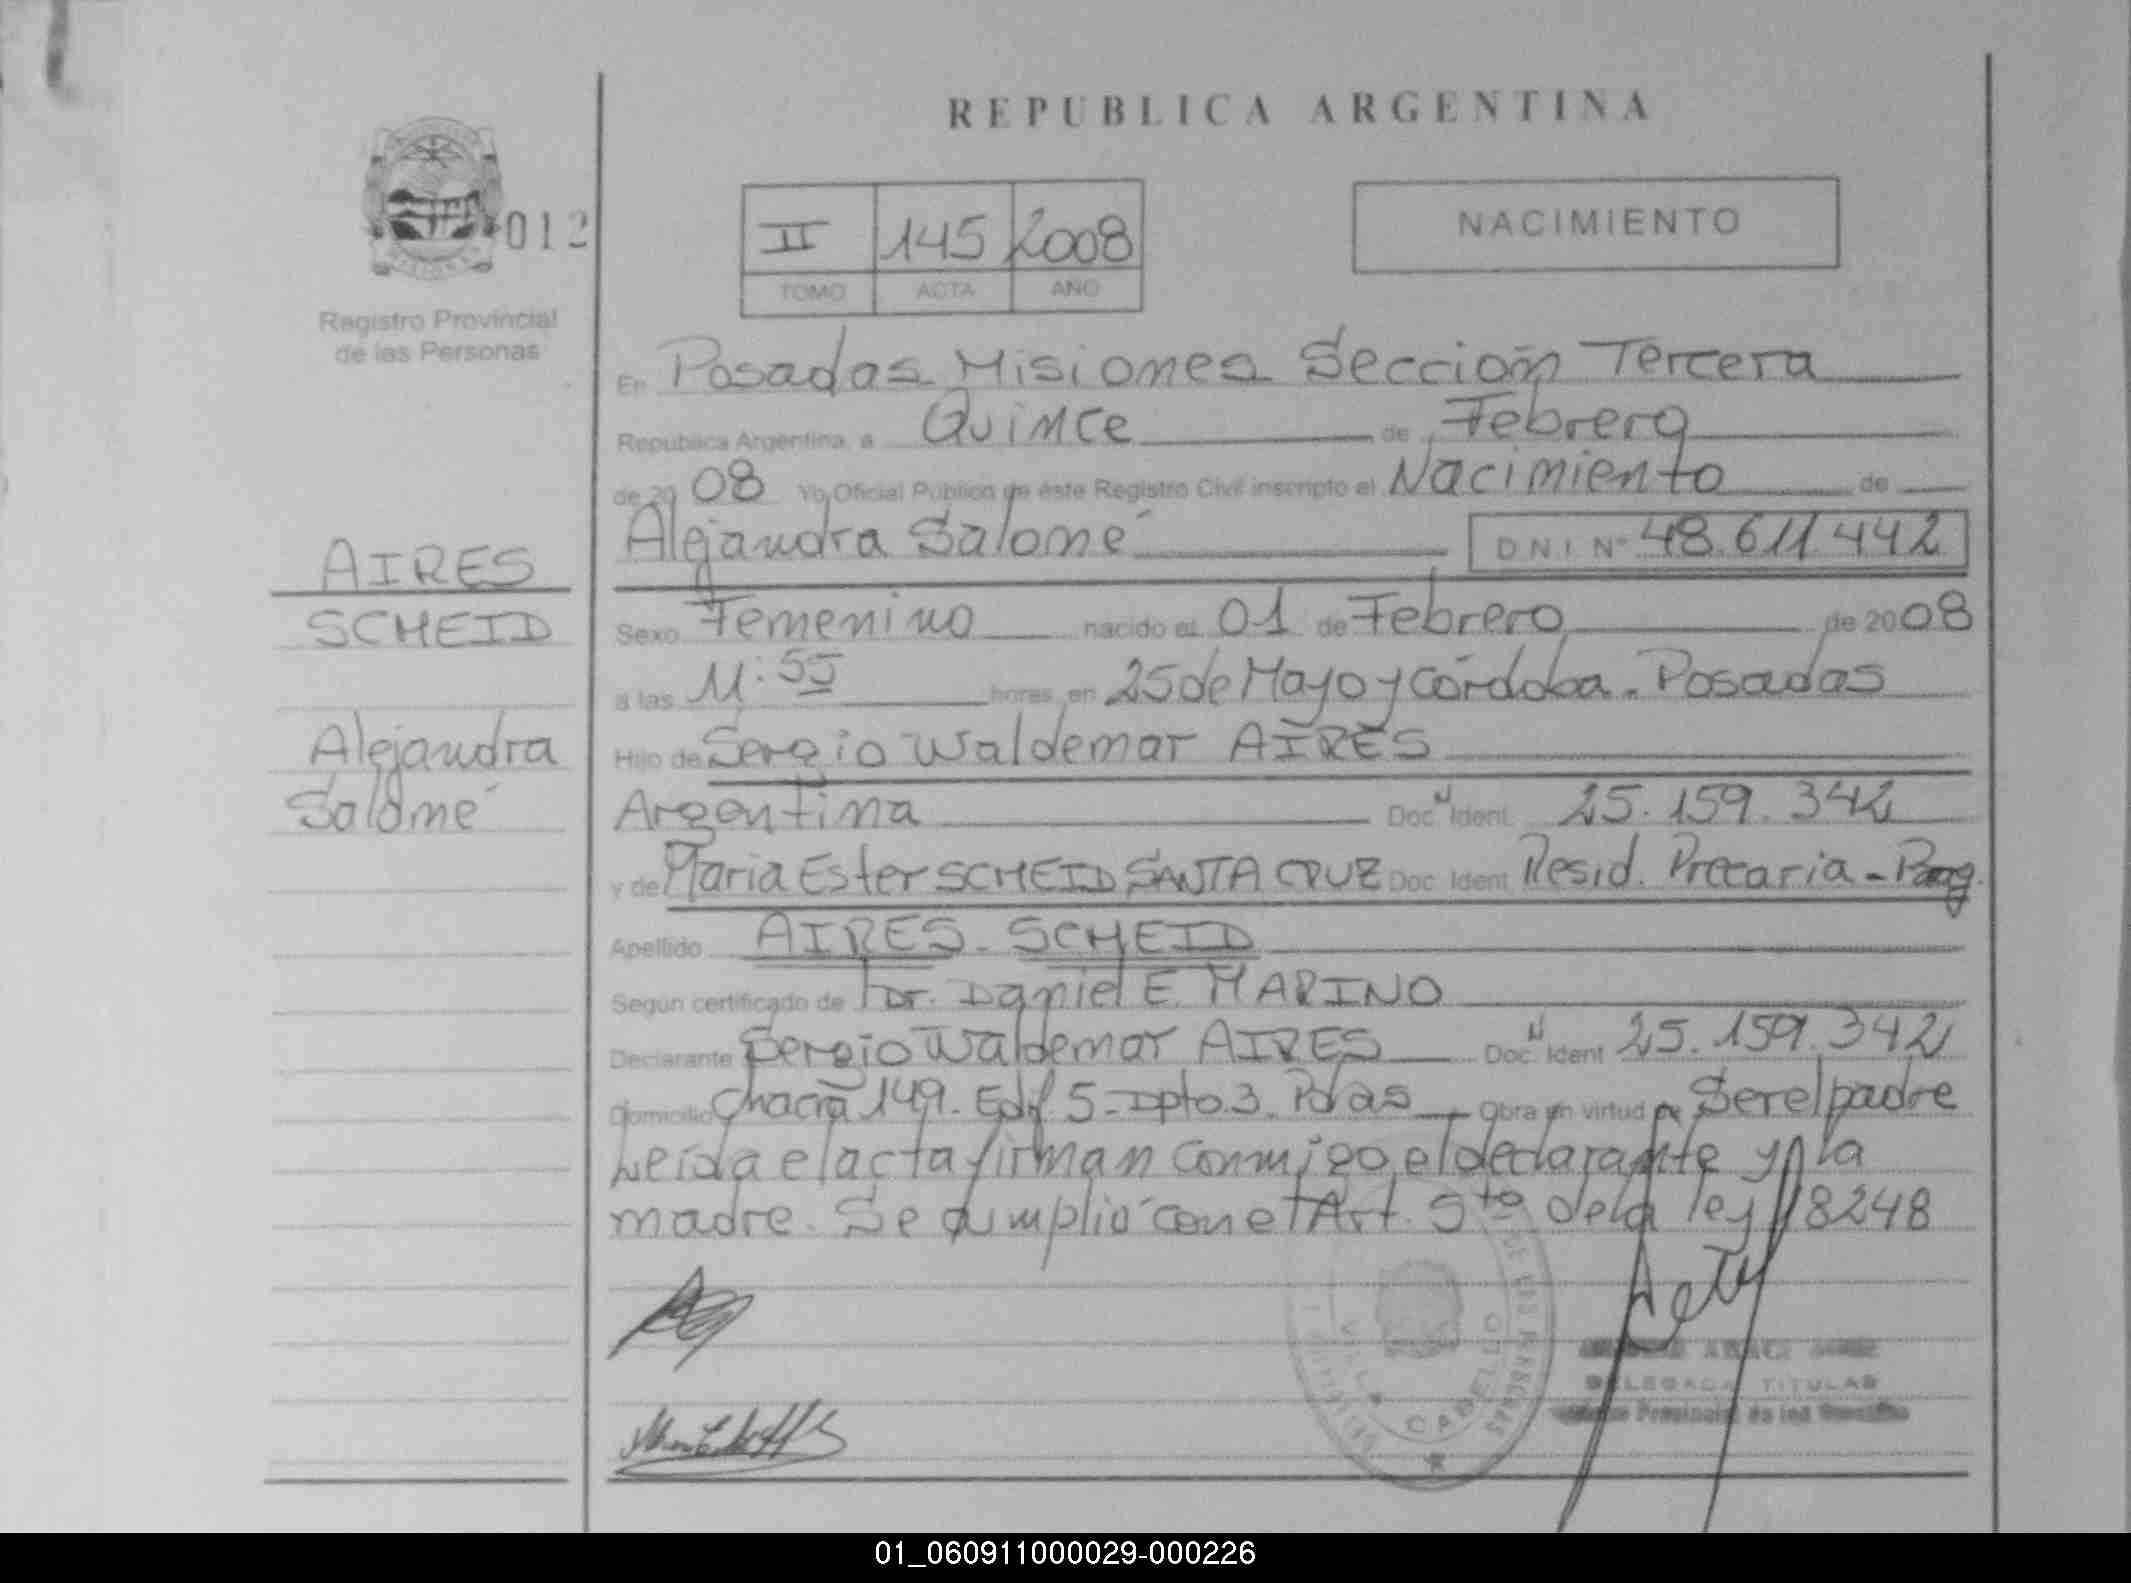 REPUBLICA ARGENTINA
012
II 145 2008
TOMO ACTA AÑO
NACIMIENTO
Registro Provincial
de las Personas
En Posadas Misiones Sección Tercera
Republica Argentina, a Quince de Febrero
de 20 08 Yo, Oficial Publico de éste Registro Civil inscripto el Nacimiento de
Alejandra Salomé D N I Nº 48.611.442
AIRES
SCHEID
Alejandra
Salomé
Sexo Femenino nacido el 01 de Febrero de 2008
a las 11:55 horas, en 25 de Mayo y Córdoba - Posadas
Hijo de Sergio Waldemar AIRES
Argentina Doc N Ident. 25.159.342
y de Maria Ester SCHEID SANTA CRUZ Doc. Ident Resid. Precaria -
Apellido AIRES - SCHEID
Según certificado de Dr. Daniel E. MARINO
Declarante Sergio Waldemar AIRES Doc. N Ident 25.159.342
Domicilio Chacra 149. Edif. 5 - Dpto 3. Pdas Obra en virtud de Ser el padre
Leída el acta firman conmigo el declarante y la
madre. Se cumplió con el Art. 5to de la ley 18248
DE LAS PERSONAS
VILLA CABELLO
DELEGADA TITULAR
Provincial de las Personas
01_060911000029-000226